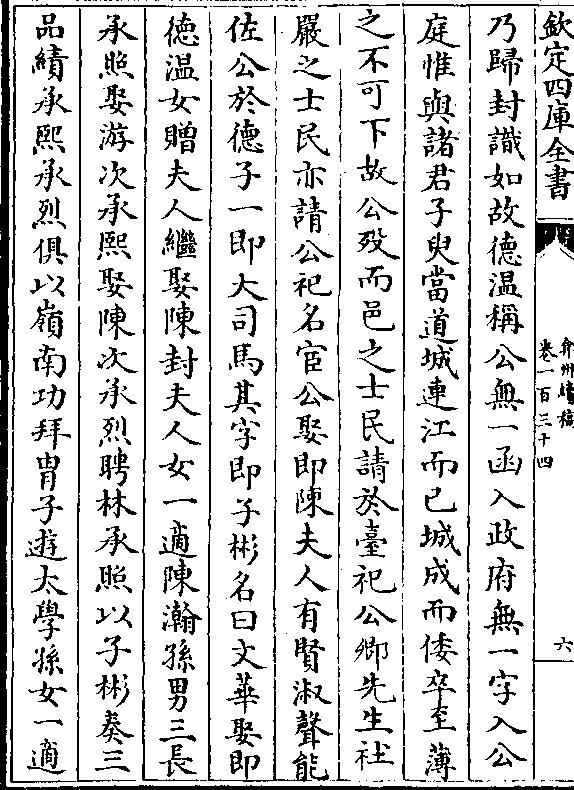 欽定四庫全書
弇州續稿
卷一百三十四
六
乃歸封識如故德温稱公無一函入政府無一字入公
庭惟與諸君子㬰當道城連江而已城成而倭卒至薄
之不可下故公殁而邑之士民請於臺祀公鄉先生社
嚴之士民亦請公祀名宦公娶即陳夫人有賢淑聲能
佐公於德子一即大司馬其字即子彬名曰文華娶即
徳温女贈夫人繼娶陳封夫人女一適陳瀚孫男三長
承照娶游次承熙娶陳次承烈聘林承照以子彬奏三
品績承熙承烈俱以嶺南功拜胄子遊太學孫女一適